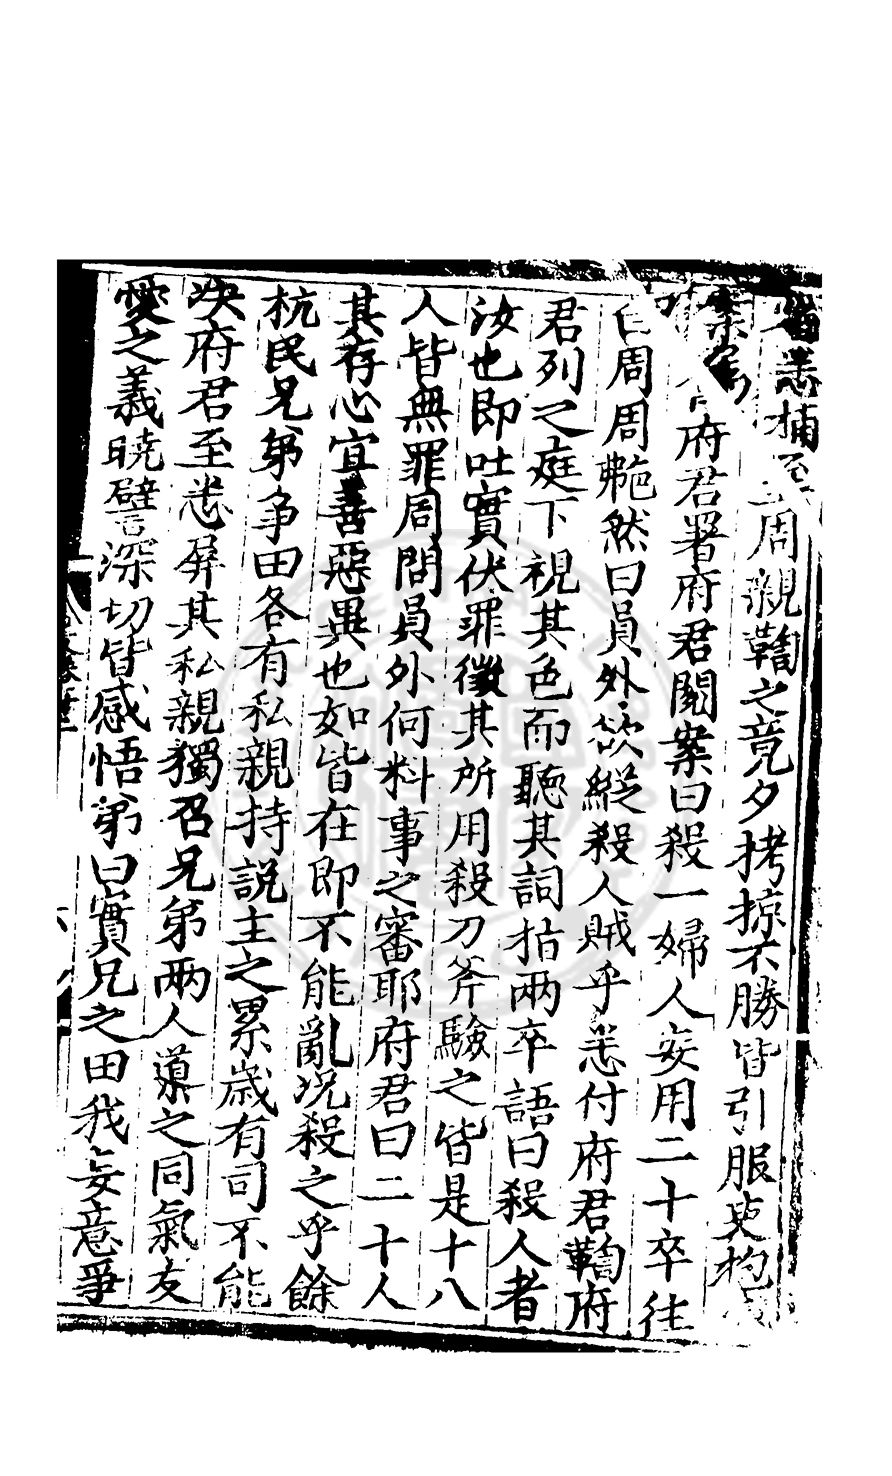 悉捕至周親鞫之竟夕拷掠不勝皆引服吏抱
案府君署府君閱案曰殺一婦人安用二十卒往
白周周艴然曰員外欲縱殺人賊乎悉付府君鞫府
君列之庭下視其色而聽其詞指兩卒語曰殺人者
汝也即吐實伏罪徵其所用殺刀斧驗之皆是十八
人皆無罪周問員外何料事之審耶府君曰二十人
其存心宜善惡異也如皆在即不能亂況殺之乎餘
杭民兄弟争田各有私親持說主之累歲有司不能
决府君至悉屏其私親獨召兄弟兩人導之同氣友
愛之義曉譬深切皆感悟弟曰實兄之田我妄意爭